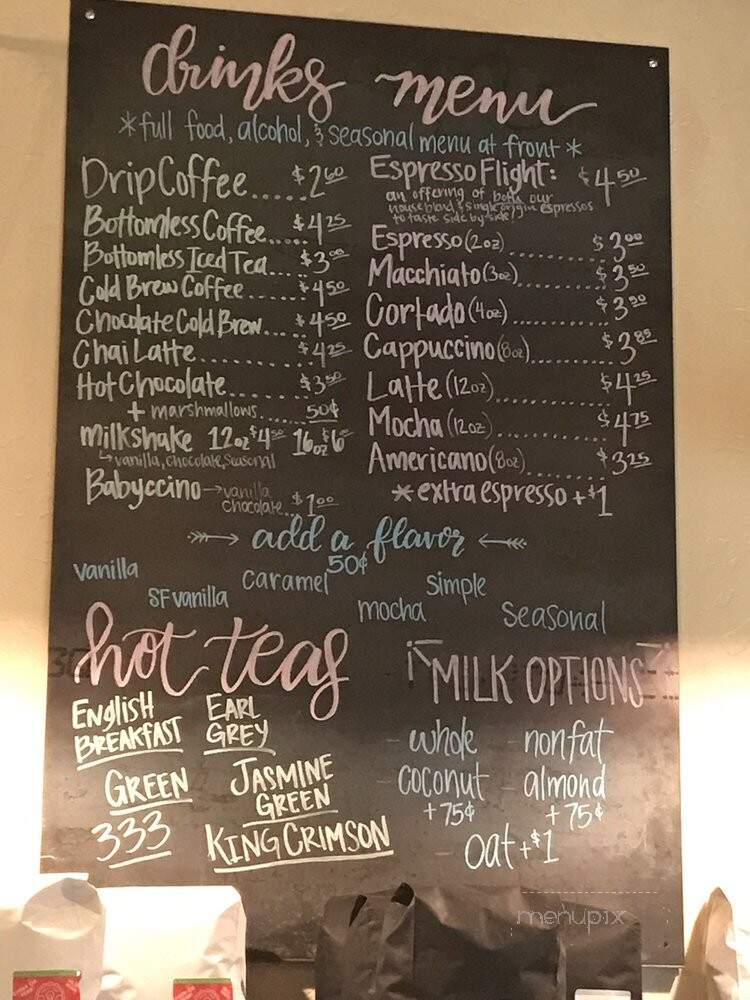 drinks menu
*full food, alcohol, & seasonal menu at front*
Drip Coffee..... $2.60
Bottomless Coffee..... $4.25
Bottomless Iced Tea.... $3.00
Cold Brew Coffee...... $4.50
Chocolate Cold Brew.... $4.50
Chai Latte........... $4.25
Hot Chocolate....... $3.50
+ marshmallows....... 50¢
Milkshake 12oz $4.50 16oz $6
vanilla, chocolate, seasonal
Babyccino → vanilla
chocolate... $1.00
Espresso Flight: $4.50
an offering of both our
houseblend & single origin espressos
to taste side by side!
Espresso (2oz)........... $3.00
Macchiato (3oz)......... $3.50
Cortado (4oz)........... $3.50
Cappuccino (8oz)........ $3.85
Latte (12oz)............. $4.25
Mocha (12oz)............ $4.75
Americano (8oz)........ $3.25
*extra espresso +$1
add a flavor
50¢
vanilla
SF vanilla
caramel
mocha
simple
seasonal
hot teas
English
Breakfast
Earl
Grey
Green
Jasmine
Green
333
King Crimson
MILK OPTIONS
- whole - nonfat
- coconut - almond
+75¢ +75¢
- oat +$1
menupix